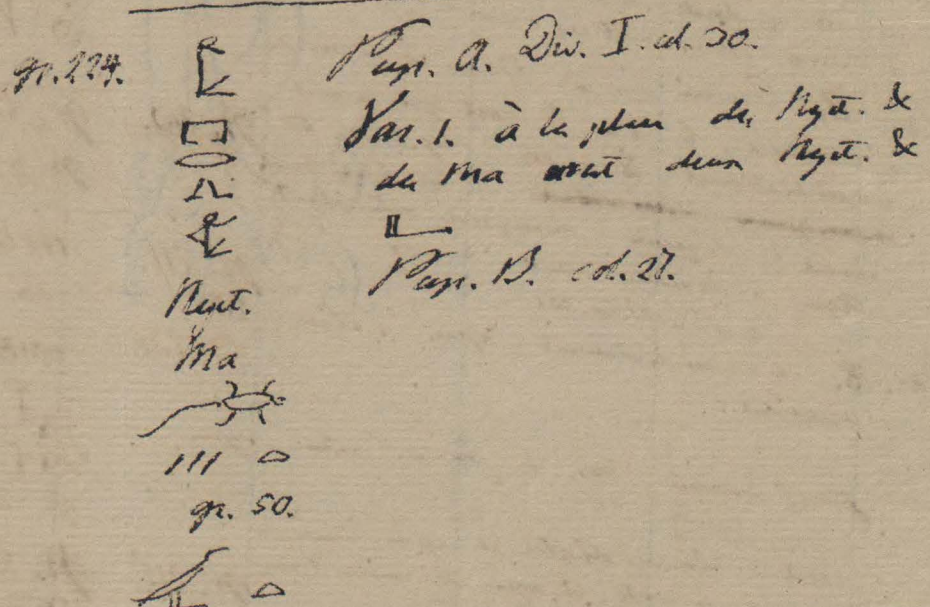 gr. 224.
Pap. A. Div. I. col. 30.
Var. 1. à la place de Nyct. &
du Ma avant deux Nyct. &
Pap. B. col. 27.
Nyct.
Ma
III
gr. 50.